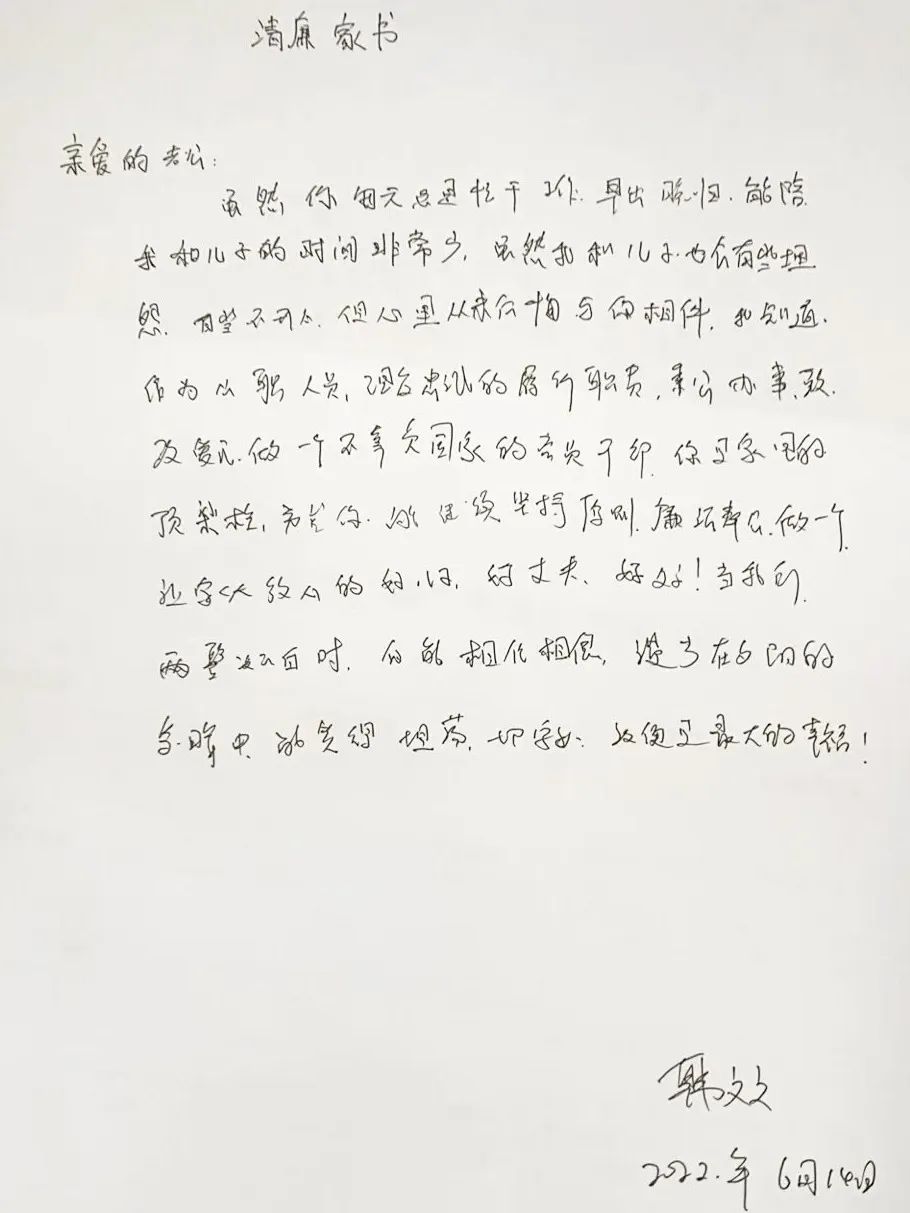 清廉家书
亲爱的老公:
虽然你每天总是忙于工作.早出晚归.能陪
我和儿子的时间非常少,虽然我和儿子也会有些埋
怨.但心里从未后悔与你相伴,我知道.
作为公职人员,理应忠诚的履行职责,秉公办事,
做一个不辜负国家的党员干部.你是家里的
顶梁柱,希望你.能继续坚持原则.廉洁奉公.做一个
的好儿子,好丈夫、好父亲!当我们
两鬓斑白时.仍能相依相偎,漫步在夕阳的
余晖中,能笑得坦荡,便是最大的幸福!
韩文文
2022.年6月14日